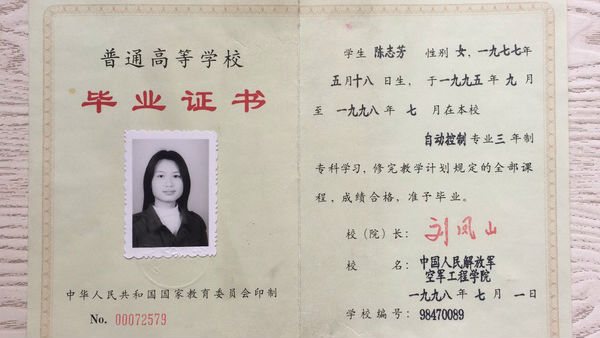 普通高等学校
毕业证书
中华人民共和国国家教育委员会印制
No. 00072579
学生 陈志芳 性别 女，一九七七年
五月十八日生，于一九九五年 九 月
至 一九九八年 七 月在本校
自动控制专业三年制
专科学习，修完教学计划规定的全部课
程，成绩合格，准予毕业。
校（院）长：刘凤山
校 名：中国人民解放军
空军工程学院
一九九八年 七 月 一日
学校编号：98470089